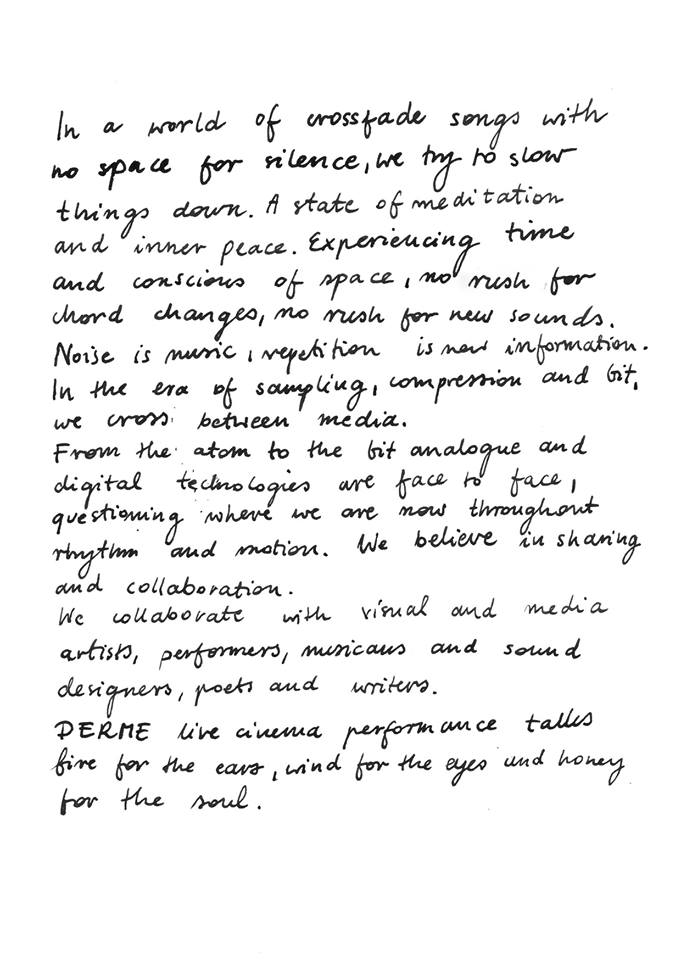 In a world of crossfade songs with
no space for silence, we try to slow
things down. A state of meditation
and inner peace. Experiencing time
and conscious of space, no rush for
chord changes, no rush for new sounds.
Noise is music, repetition is new information.
In the era of sampling, compression and bit,
we cross between media.
From the atom to the bit analogue and
digital technologies are face to face,
questioning where we are now throughout
rhythm and motion. We believe in sharing
and collaboration.
We collaborate with visual and media
artists, performers, musicians and sound
designers, poets and writers.
DERME live cinema performance talks
fire for the ears, wind for the eyes and honey
for the soul.